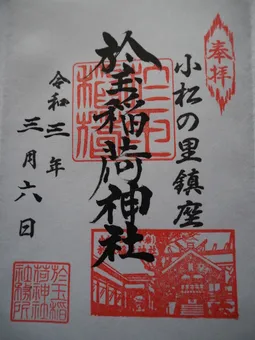 奉拝
小松の里鎮座
於玉稲荷神社
令和三年
三月六日
於玉稲荷
於玉稲荷神社社務所